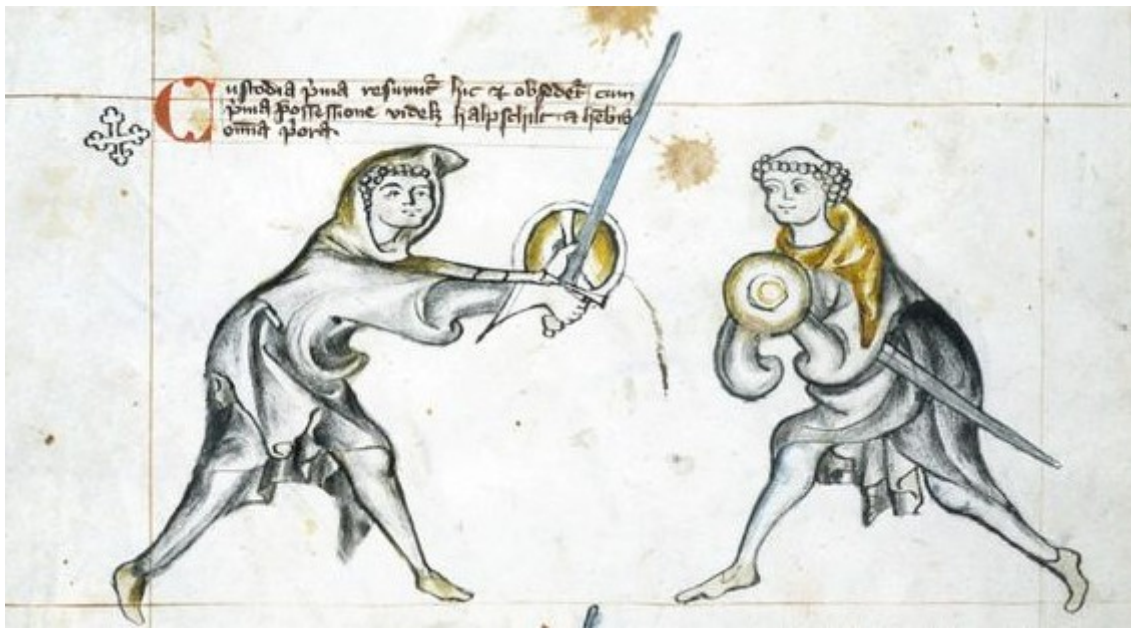 Custodia p̄ma resumit᷑ hic ⁊ obsedet᷑ cum
p̄ma possessione videlꝫ halpschilt ⁊ hēbis
om̄ia p̄ora